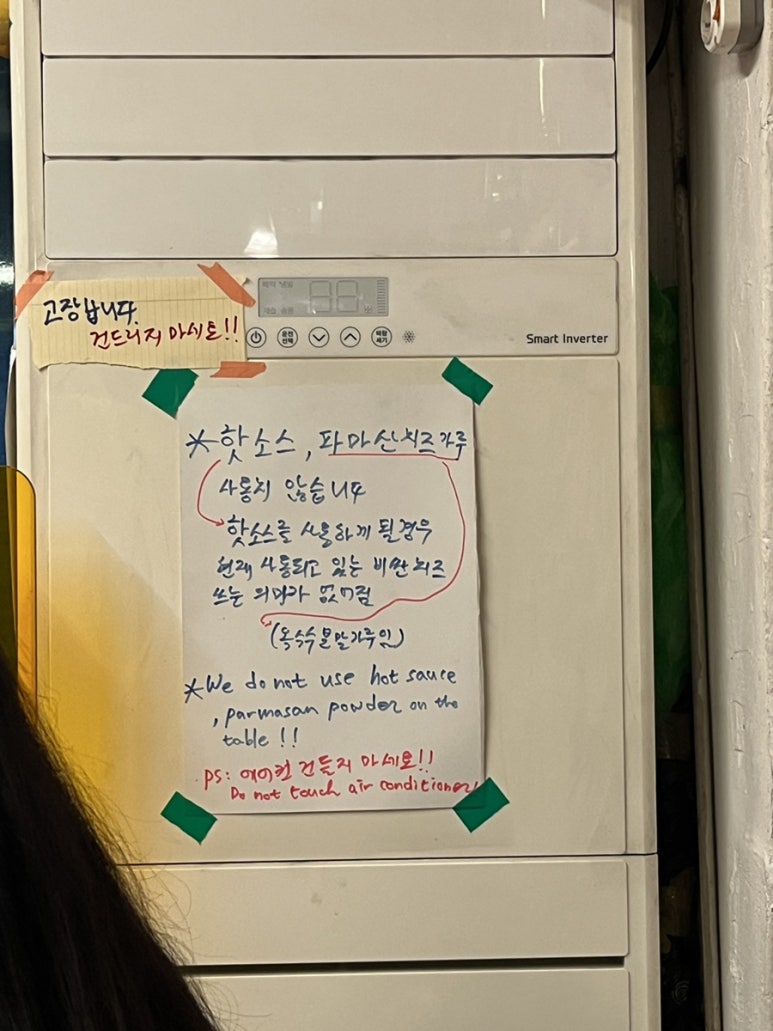 고장납니다.
건드리지 마세요!!
운전
선택
바람
세기
Smart Inverter
*핫소스, 파마산치즈가루
사용치 않습니다
핫소스를 사용하게 될경우
현재 사용되고 있는 비싼치즈
쓰는 의미가 없어짐
(옥수수분말가루임)
*We do not use hot sauce
, parmasan powder on the
table!!
PS: 에어컨 건들지 마세요!!
Do not touch air conditioner!